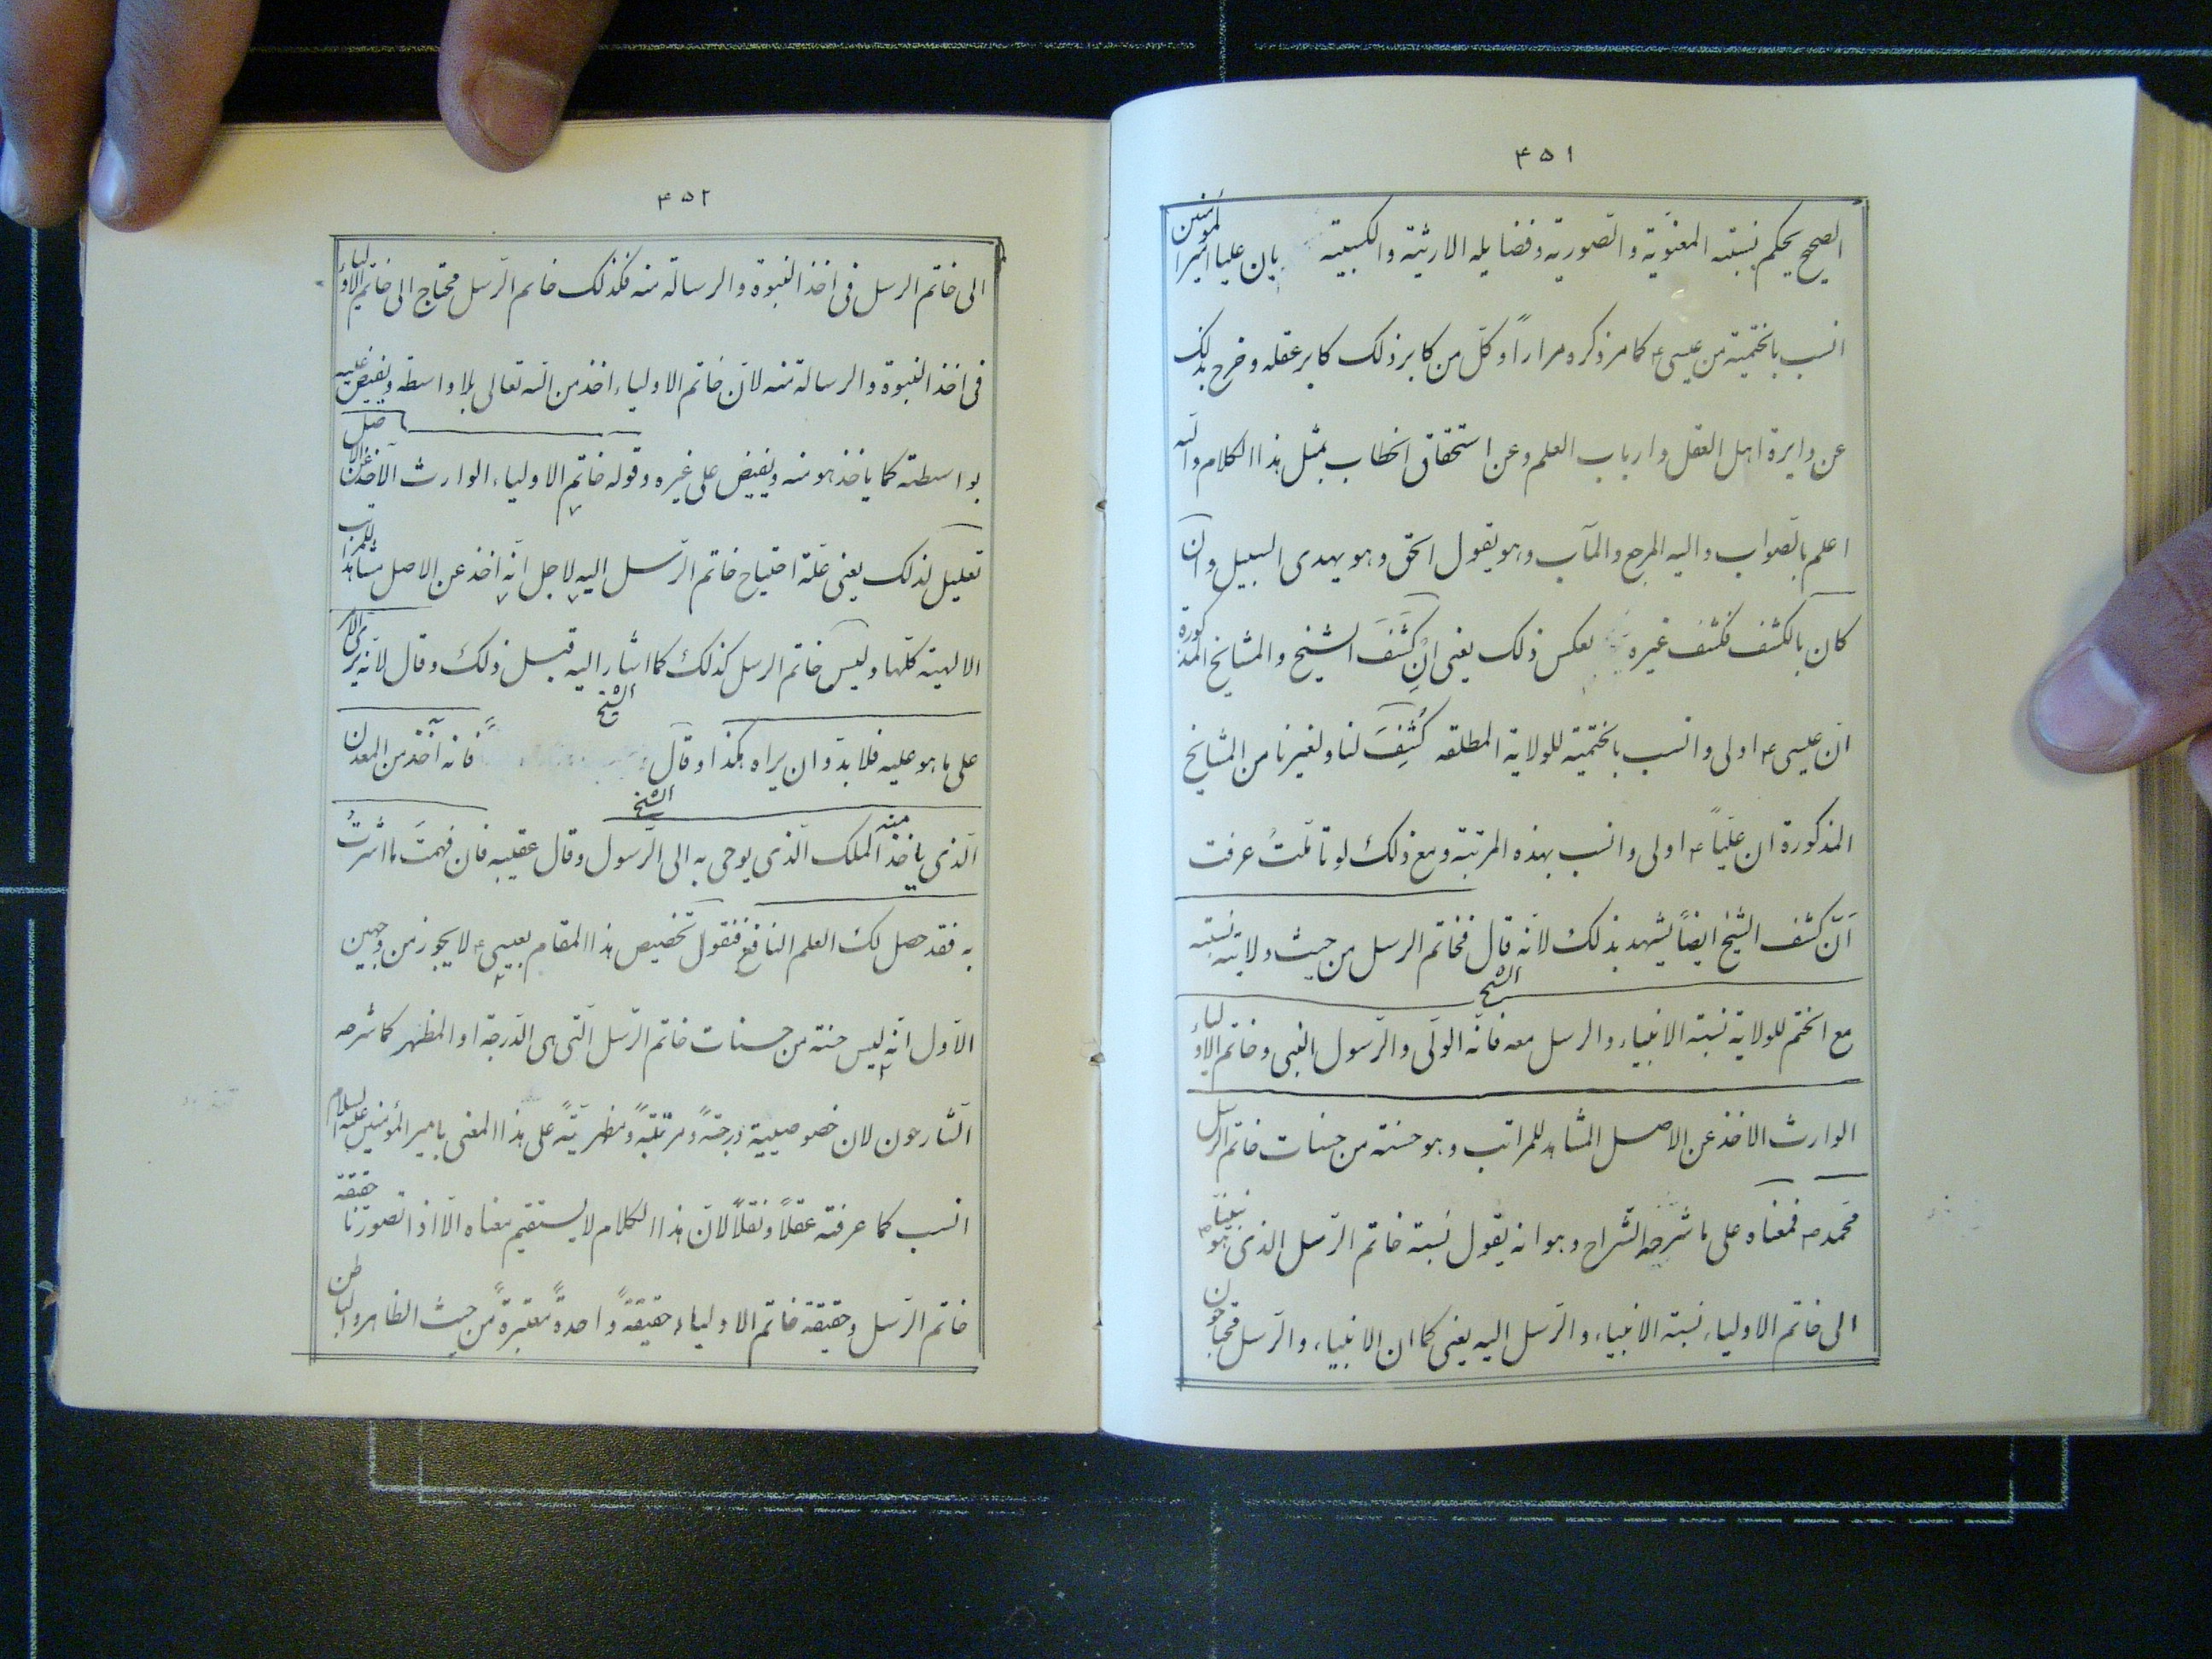 ۴۵۱
الصحیح یحکم بنسبته المعنویة والصوریة وفضایله الارثیة والکسبیة بان علیا امیرالمؤمنین
انسب بالختمیة من عیسی ع کما مرّ ذکره مراراً وکلّ من کابر ذلک کابر عقله وخرج بذلک
عن دایرة اهل العقل وارباب العلم وعن استحقاق الخطاب بمثل هذا الکلام والله
اعلم بالصواب والیه المرجع والمآب وهو یقول الحق وهو یهدی السبیل وان
کان بالکشف فکشف غیره بعکس ذلک یعنی ان کُشَفَ الشیخ والمشایخ المذکورة
انّ عیسی ع اولی وانسب بالختمیة للولایة المطلقه کُشِفَ لنا ولغیرنا من المشایخ
المذکورة ان علیّاً ع اولی وانسب بهذه المرتبة ومع ذلک لو تاملتَ عرفت
اَنّ کشف الشیخ ایضاً یشهد بذلک لانّه قال فخاتم الرسل من حیث ولایته نسبته
الشیخ
مع الختم للولایة نسبة الانبیاء والرسل معه فانّه الولّی والرّسول النبی وخاتم الاولیاء
الوارث الاخذ عن الاصل المشاهد للمراتب وهو حسنة من حسنات خاتم الرسل
محمّد ص فمعناه علی ما شرحه الشّراح وهو انه یقول نسبة خاتم الرّسل الذی هو نبیّنا ص
الی خاتم الاولیاء نسبة الانبیاء والرّسل الیه یعنی کما ان الانبیاء والرّسل محتاجون
۴۵۲
الی خاتم الرسل فی اخذ النبوة والرسالة منه فکذلک خاتم الرّسل محتاج الی خاتم الاولیاء
فی اخذ النبوة والرسالة منه لانّ خاتم الاولیاء اخذ من الله تعالی بلا واسطه ویفیض علیه
بواسطته کما یاخذ هو منه ویفیض علی غیره وقوله خاتم الاولیاء الوارث الآخذ عن الاصل
تعلیل لذلک یعنی علّة احتیاج خاتم الرّسل الیه لاجل انّه اخذ عن الاصل مشاهد للمراتب
الالهیة کلّها ولیس خاتم الرسل کذلک کما اشار الیه قبل ذلک وقال لانّه یری الامر
الشیخ
علی ما هو علیه فلا بدّ وان یراه هکذا وقال فانه آخذٌ من المعدن
الشیخ
الّذی یاخذ منه الملک الّذی یوحی به الی الرّسول وقال عقیبه فان فهمتَ ما اشرتُ
به فقد حصل لک العلم النافع فنقول تخصیص هذا المقام بعیسی ع لا یجوز من وجهین
الاول انّه لیس حسنة من حسنات خاتم الرّسل الّتی هی الدّرجة او المظهر کما شرحه
الشّارحون لان خصوصیته درجةً ومرتبةً ومظهریّةً علی هذا المعنی بامیرالمؤمنین علیه السلام
انسب کما عرفته عقلاً ونقلاً لانّ هذا الکلام لا یستقیم معناه الّا اذا تصوّرنا حقیقة
خاتم الرّسل وحقیقة خاتم الاولیاء حقیقةً واحدةً معتبرةً من حیث الظاهر والباطن